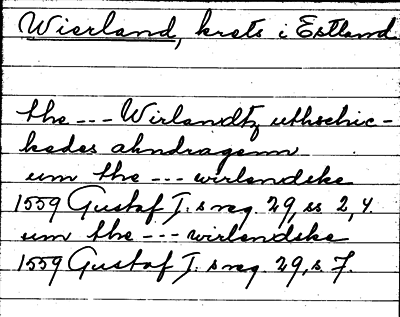 Wierland, krets i Estland.
the --- Wirlandtz uthschic-
kades ahndragenn
um the --- wirlendske
1559 Gustaf I:s reg. 29, ss 2, 4.
um the --- wirlendske
1559 Gustaf I:s reg. 29, s. 7.